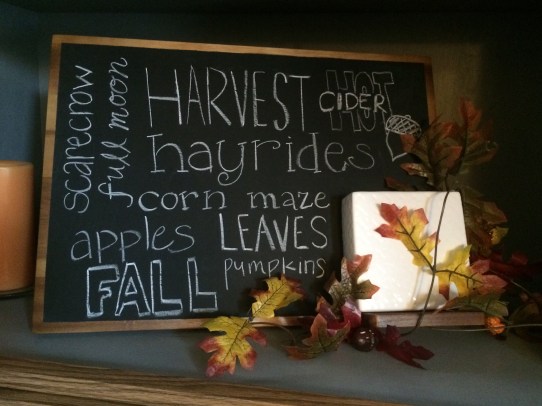 scarecrow
full moon
HARVEST
HOT
CIDER
hayrides
corn maze
apples
LEAVES
FALL
pumpkins